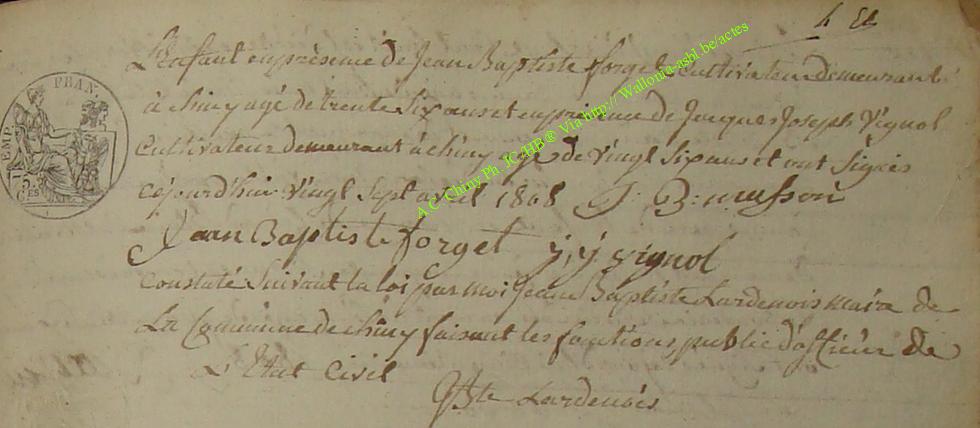 L'Enfant en présence de Jean Baptiste forget Cultivateur demeurant
à Chiny agé de trente Six ans et en présence de Jacques Joseph Vignol
Cultivateur demeurant à chiny agé de vingt Six ans et ont Signés
cejourd'hui vingt Sept avril 1808 J: B: musson
Jean Baptiste forget j, j vignol
Constaté Suivant la loi par moi Jean Baptiste Lardenois maire de
La Commune de chiny faisant les fonctions public d'officier de
L'Etat Civil
JBte Lardenois
EMP. FRAN.
A.C. Chiny Ph. JC/HB® Via http:// Wallonia-asbl.be/actes